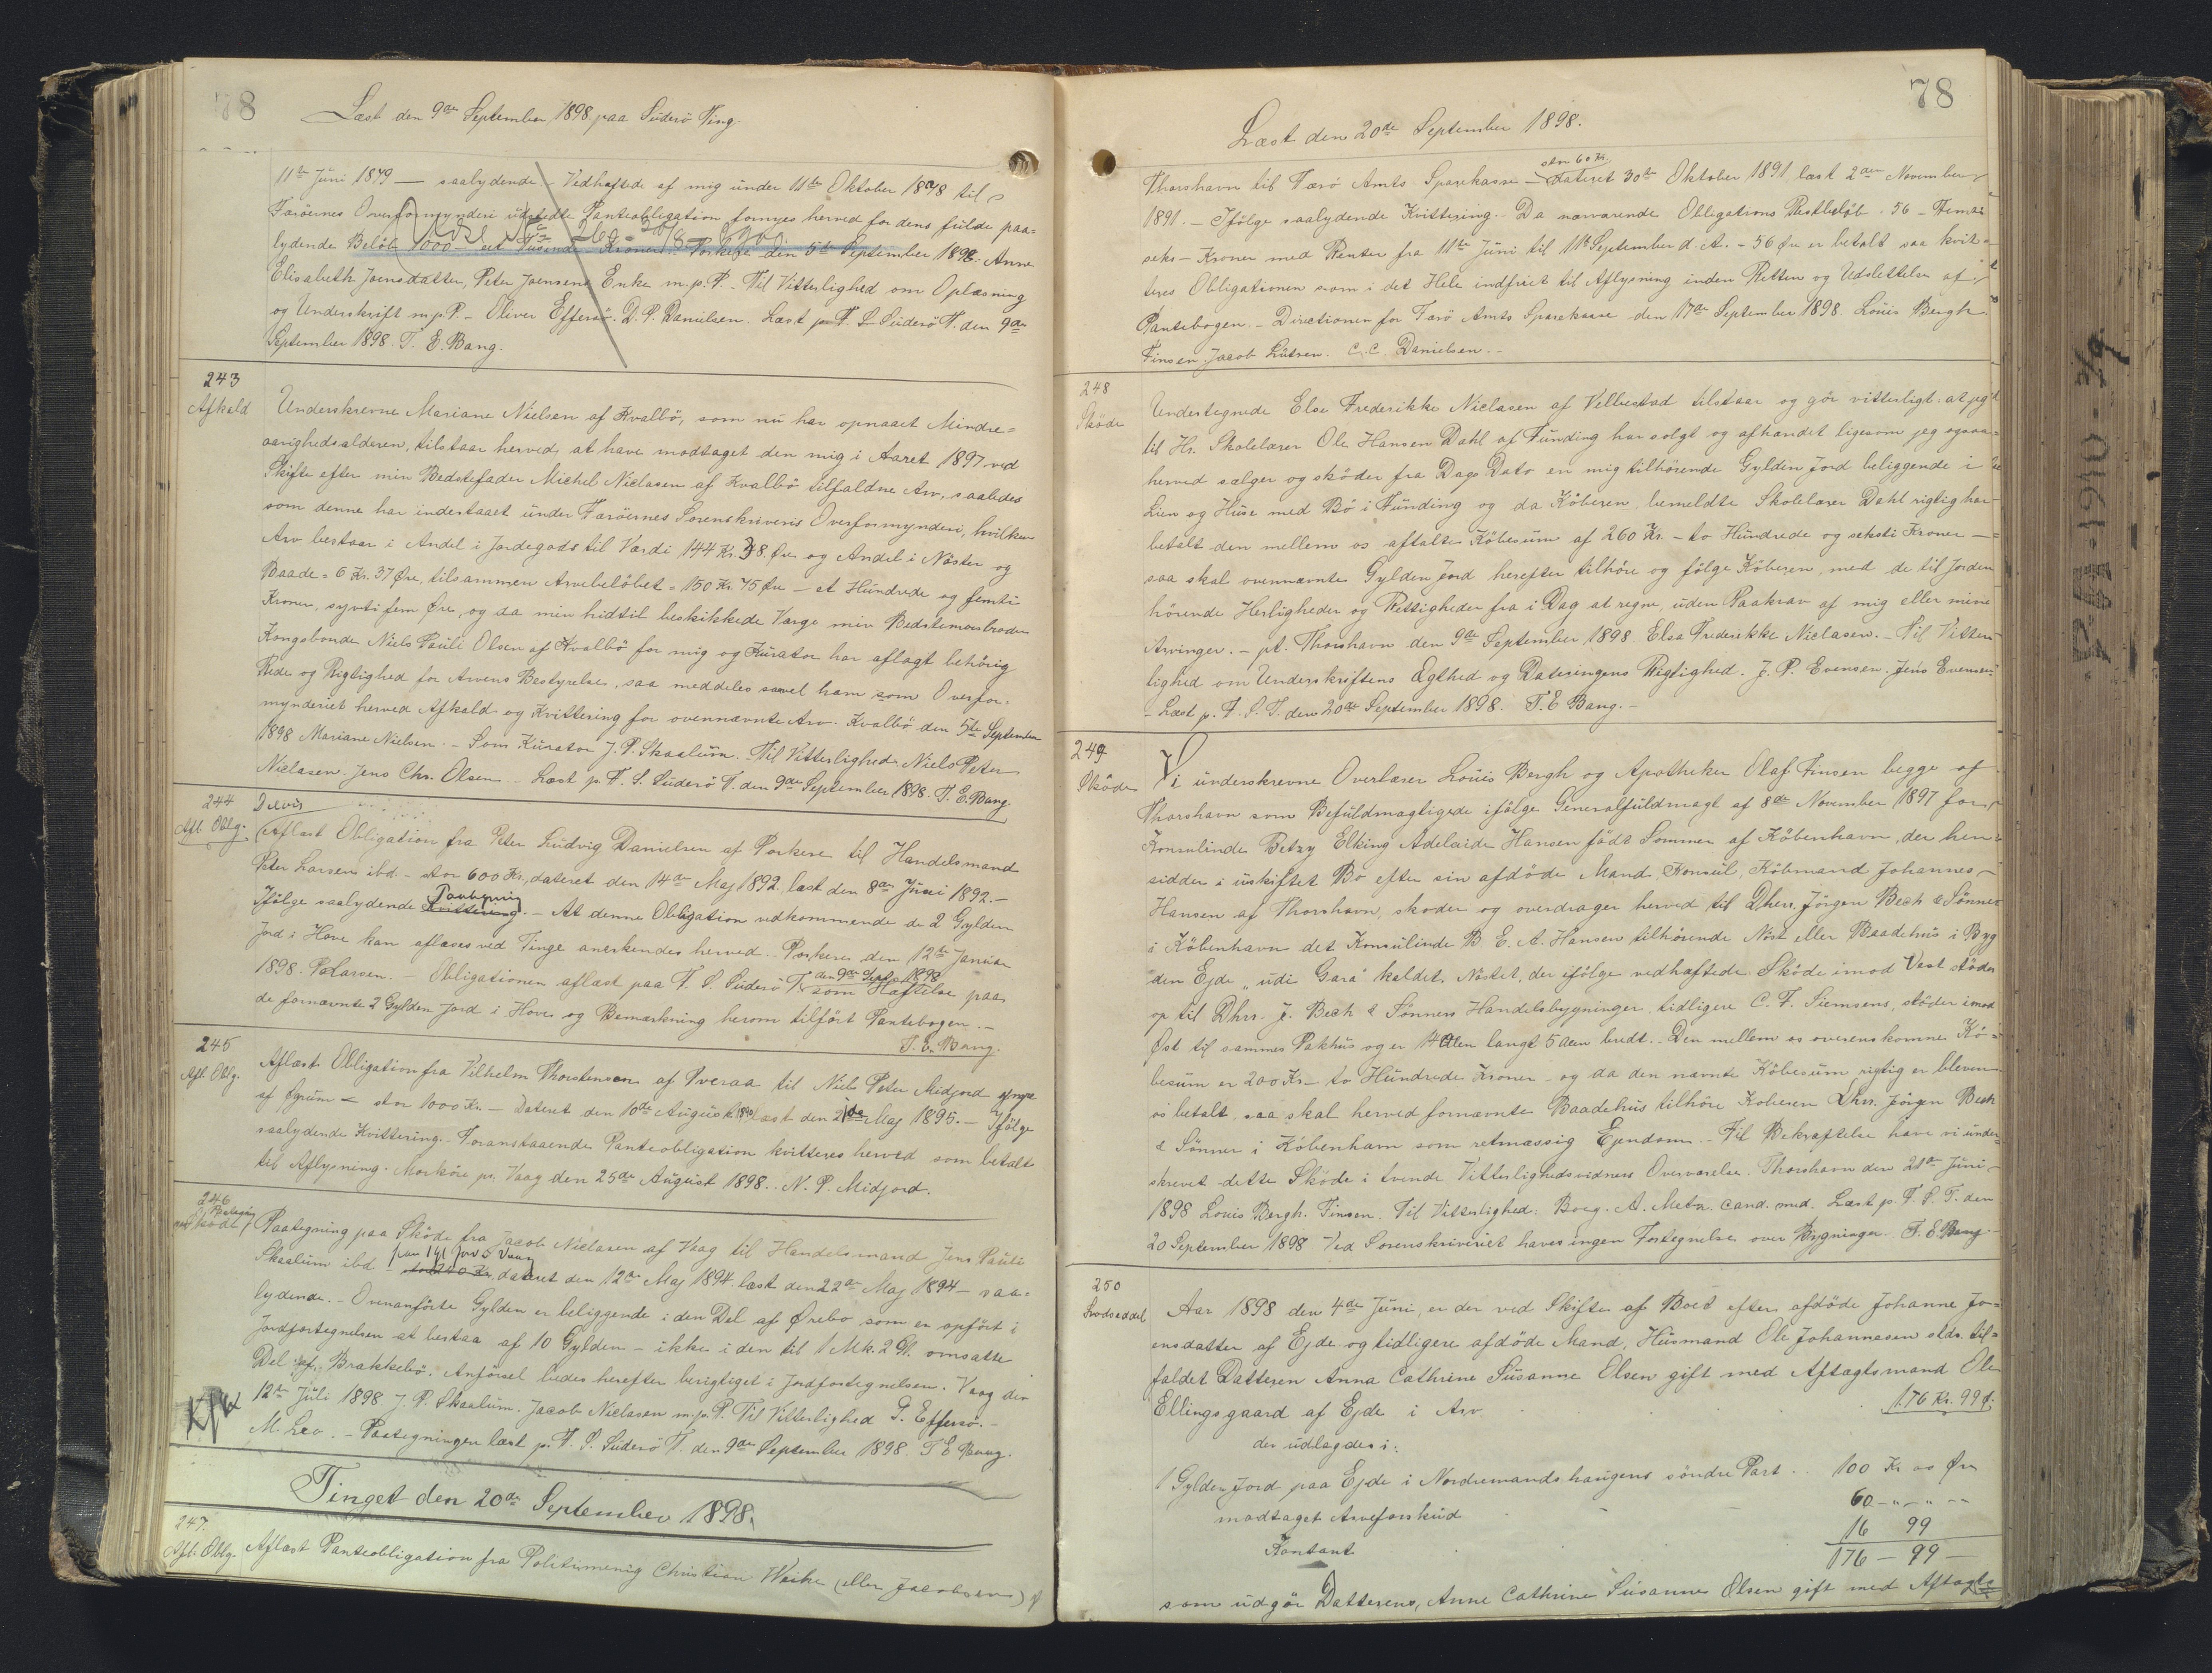 78
Læst den 9de September 1898 paa Suderö Ting
11te Juni 1879 — saalydende — Vedhæftede af mig under 11te Oktober 1878 til
Færöernes Overformynderi udstedte Panteobligation fornyes herved for dens fulde paa=
lydende Belöb 1000 — et Tusende Kroner. Porkere den 5te September 1898. Anne
Elisabeth Joensdatter, Peter Joensens Enke m.p.P. — Til Vitterlighed om Oplæsning
og Underskrift m.p.P. — Oliver Effersö. D. P. Danielsen. Læst p. F. S. Suderö T. den 9de
September 1898. T. E. Bang.
243
Afkald
Underskrevne Mariane Nielsen af Kvalbö, som nu har opnaaet Mindre=
aarighedsalderen, tilstaar herved, at have modtaget den mig i Aaret 1897 ved
Skifte efter min Bedstefader Michel Niclasen af Kvalbö tilfaldne Arv, saaledes
som denne har indestaaet under Færöernes Sorenskriveris Overformynderi, hvilken
Arv bestaar i Andel i Jordegods til Værdi 144 Kr. 38 Øre og Andel i Nöster og
Baade = 6 Kr. 37 Øre, tilsammen Arvebelöbet = 150 Kr. 75 Øre — et Hundrede og femti
Kroner, syvti fem Øre, og da min hidtil beskikkede Værge min Bedstemorbroder
Kongsbonde Niels Pauli Olsen af Kvalbö for mig og Kurator har aflagt behörig
Rede og Rigtighed for Arvens Bestyrelse, saa meddeles saavel ham som Overfor=
mynderiet herved Afkald og Kvittering for ovennævnte Arv. Kvalbö den 5te September
1898 Mariane Nielsen. — Som Kurator J. P. Skaalum. Til Vitterlighed: Niels Peter
Niclasen. Jens Chr. Olsen — Læst p. F. S. Suderö T. den 9de September 1898. T. E. Bang.
244
Afl. Oblg.
Delvis
Aflæst Obligation fra Peter Ludvig Danielsen af Porkere til Handelsmand
Peter Larsen ibd. — stor 600 Kr., dateret den 14de Maj 1892, læst den 8de Juni 1892. —
Ifölge saalydende Paategning Kvittering. — At denne Obligation vedkommende de 2 Gylden
Jord i Hove kan aflæses ved Tinge anerkendes herved. Porkere den 12te Januar
1898. P. Larsen. — Obligationen aflæst paa F. S. Suderö T. den 9de Septbr 1898 som Hæftelse paa
de fornævnte 2 Gylden Jord i Hove og Bemærkning herom tilfört Pantebogen. —
T. E. Bang.
245
Afl. Oblg.
Aflæst Obligation fra Vilhelm Thorstensen af Tveraa til Niels Peter Midjord yngre
af Øgrum — stor 1000 Kr. — Dateret den 10de August 1890, læst den 2de Maj 1895. — Ifölge
saalydende Kvittering. Foranstaaende Panteobligation kvitteres herved som betalt
til Aflysning. Morköre pr. Vaag den 25de August 1898. N. P. Midjord.
246
Paategning
Paategning paa Sköde fra Jacob Niclasen af Vaag til Handelsmand Jens Pauli
Skaalum ibd — paa 1 Gl Jord i Vaag, dateret den 12te Maj 1894, læst den 22de Maj 1894 — saa=
lydende. — Ovenanförte Gylden er beliggende i den Del af Ørebo som er opfört i
Jordfortegnelsen at bestaa af 10 Gylden — ikke i den til 1 Mk. 2 Gl. omsatte
Del af Brakkebö. Anförsel bedes herefter berigtiget i Jordfortegnelsen. Vaag den
12te Juli 1898 J. P. Skaalum. Jacob Niclasen m.p.P. Til Vitterlighed P. Effersö. —
M. Leo. — Paategningen læst p. F. S. Suderö T. den 9de September 1898. T E Bang.
Tinget den 20de September 1898.
247.
Afl. Oblg.
Aflæst Panteobligation fra Politimenig Christian Weihe (eller Jacobsen) af
78
Læst den 20de September 1898.
stor 60 Kr.
Thorshavn til Færö Amts Sparekasse — dateret 30te Oktober 1891, læst 2den November
1891. — Ifölge saalydende Kvittering. Da nærværende Obligations Restbelöb 56 — Femti
seks — Kroner med Renter fra 11te Juni til 11te September d. A. — 56 Øre er betalt saa kvit=
teres Obligationen som i det Hele indfriet til Aflysning inden Retten og Udslettelse af
Pantebogen. — Directionen for Færö Amts Sparekasse den 17de September 1898. Louis Bergh
Finsen. Jacob Lützen. C. C. Danielsen. —
248
Sköde
Undertegnede Else Frederikke Niclasen af Velbestad tilstaar og gör vitterligt: at jeg
til Hr. Skolelærer Ole Hansen Dahl af Funding har solgt og afhændet ligesom jeg ogsaa
herved sælger og sköder fra Dags Dato en mig tilhörende Gylden Jord beliggende i
Lien og Huse med Bö i Funding og da Köberen, bemeldte Skolelærer Dahl rigtig har
betalt den mellem os aftalte Köbesum af 260 Kr. — to Hundrede og seksti Kroner —
saa skal ovennævnte Gylden Jord herefter tilhöre og fölge Köberen, med de til Jorden
hörende Herligheder og Rettigheder fra i Dag at regne, uden Paakrav af mig eller mine
Arvinger. — pt. Thorshavn den 9de September 1898 Else Frederikke Niclasen. — Til Vitter=
lighed om Underskriftens Ægthed og Dateringens Rigtighed. J. P. Evensen. Jens Evensen.
— Læst p. F. S. T. den 20de September 1898. T. E Bang. —
249
Sköde
Vi underskrevne Overlærer Louis Bergh og Apotheker Olaf Finsen begge af
Thorshavn som Befuldmægtigede ifölge Generalfuldmagt af 8de November 1897 for
Konsulinde Betzy Elking Adelaide Hansen född Sommer af Köbenhavn, der hen=
sidder i uskiftet Bo efter sin afdöde Mand, Konsul, Köbmand Johannes
Hansen af Thorshavn, skøder og overdrager herved til Dhrr. Jörgen Bech & Sönner
i Köbenhavn det Konsulinde B. E. A. Hansen tilhörende Nöst eller Baadehus i Byg
den Ejde „udi Gara“ kaldet. Nöstet, der ifölge vedhæftede Sköde imod Vest stöder
op til Dhrr. J. Bech & Sönners Handelsbygninger, tidligere C. F. Siemsens, stöder imod
Øst til sammes Pakhus og er 14 Alen langt 5 Alen bredt. Den mellem os overenskomne Kö=
besum er 200 Kr. — to Hundrede Kroner — og da den nævnte Köbesum rigtig er bleven
os betalt, saa skal herved fornævnte Baadehus tilhöre Köberen Dhrr. Jörgen Bech
& Sönner i Köbenhavn som retmæssig Ejendom. — Til Bekræftelse have vi under=
skrevet dette Sköde i tvende Vitterlighedsvidners Overværelse. Thorshavn den 21de Juni
1898 Louis Bergh. Finsen. Til Vitterlighed: Boeg. A. Metz. cand. med. Læst p. F. S. T. den
20 September 1898 Ved Sorenskriveriet haves ingen Fortegnelse over Bygninger. T. E. Bang
250
Lodseddel
Aar 1898 den 4de Juni, er der ved Skifte af Boet efter afdöde Johanne Jo=
ensdatter af Ejde og tidligere afdöde Mand, Husmand Ole Johannesen sdst. til=
faldet Datteren Anna Cathrine Susanne Olsen gift med Aftagtsmand Ole
Ellingsgaard af Ejde i Arv . . . 176 Kr. 99 Ø.
der udlagdes i:
1 Gylden Jord paa Ejde i Nordremandshaugens söndre Part . . 100 Kr. oo Øre
modtaget Arveforskud 60 — „ — „ —
Kontant 16 99
176 — 99 —
som udgör Datterens, Anne Cathrine Susanne Olsen gift med Aftagts